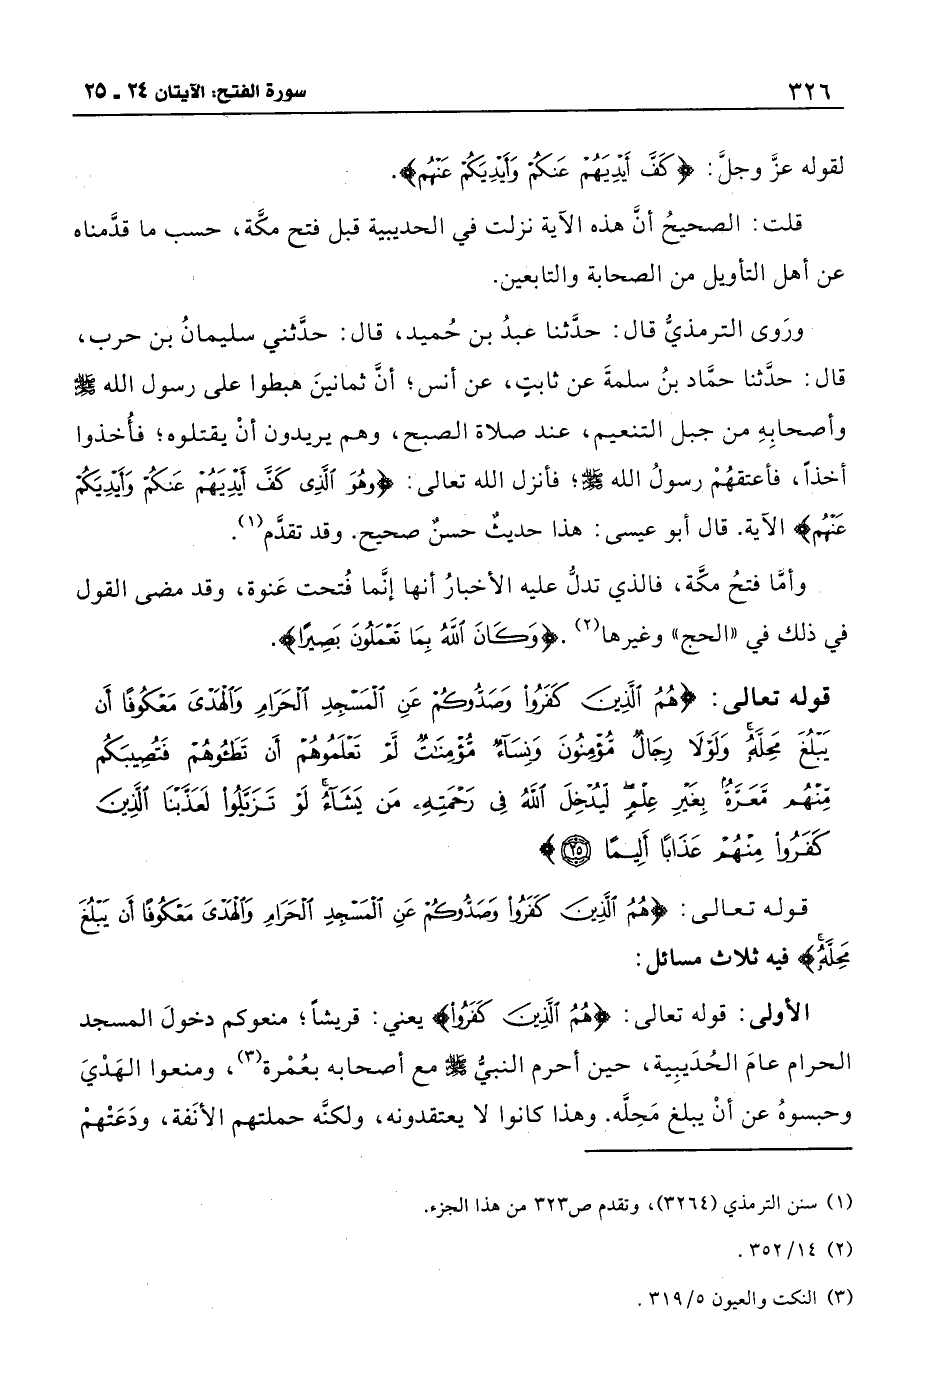 ٣٢٦
سورة الفتح: الآيتان ٢٤ ـ ٢٥
لقوله عزَّ وجلَّ: ﴿كَفَّ أَيْدِيَهُمْ عَنكُمْ وَأَيْدِيَكُمْ عَنْهُم﴾.
قلت: الصحيحُ أنَّ هذه الآية نزلت في الحديبية قبل فتح مكَّة، حسب ما قدَّمناه
عن أهل التأويل من الصحابة والتابعين.
ورَوى الترمذيُّ قال: حدَّثنا عبدُ بن حُميد، قال: حدَّثني سليمانُ بن حرب،
قال: حدَّثنا حمَّاد بنُ سلمةَ عن ثابتٍ، عن أنس؛ أنَّ ثمانينَ هبطوا على رسول الله ﷺ
وأصحابِهِ من جبل التنعيم، عند صلاة الصبح، وهم يريدون أنْ يقتلوه؛ فأُخذوا
أخذاً، فأعتقهُمْ رسولُ الله ﷺ؛ فأنزل الله تعالى: ﴿وَهُوَ ٱلَّذِى كَفَّ أَيْدِيَهُمْ عَنكُمْ وَأَيْدِيَكُمْ
عَنْهُم﴾ الآية. قال أبو عيسى: هذا حديثٌ حسنٌ صحيح. وقد تقدَّم(١).
وأمَّا فتحُ مكَّة، فالذي تدلُّ عليه الأخبارُ أنها إنَّما فُتحت عَنوة، وقد مضى القول
في ذلك في «الحج» وغيرها(٢). ﴿وَكَانَ ٱللَّهُ بِمَا تَعْمَلُونَ بَصِيرًا﴾.
قوله تعالى: ﴿هُمُ ٱلَّذِينَ كَفَرُواْ وَصَدُّوكُمْ عَنِ ٱلْمَسْجِدِ ٱلْحَرَامِ وَٱلْهَدْىَ مَعْكُوفًا أَن
يَبْلُغَ مَحِلَّهُۥۚ وَلَوْلَا رِجَالٌ مُّؤْمِنُونَ وَنِسَآءٌ مُّؤْمِنَٰتٌ لَّمْ تَعْلَمُوهُمْ أَن تَطَـُٔوهُمْ فَتُصِيبَكُم
مِّنْهُم مَّعَرَّةٌۢ بِغَيْرِ عِلْمٍۖ لِّيُدْخِلَ ٱللَّهُ فِى رَحْمَتِهِۦ مَن يَشَآءُۚ لَوْ تَزَيَّلُواْ لَعَذَّبْنَا ٱلَّذِينَ
كَفَرُواْ مِنْهُمْ عَذَابًا أَلِيمًا ٢٥﴾
قوله تعالى: ﴿هُمُ ٱلَّذِينَ كَفَرُواْ وَصَدُّوكُمْ عَنِ ٱلْمَسْجِدِ ٱلْحَرَامِ وَٱلْهَدْىَ مَعْكُوفًا أَن يَبْلُغَ
مَحِلَّهُۥۚ﴾ فيه ثلاث مسائل:
الأولى: قوله تعالى: ﴿هُمُ ٱلَّذِينَ كَفَرُواْ﴾ يعني: قريشاً؛ منعوكم دخولَ المسجد
الحرام عامَ الحُدَيبِية، حين أحرم النبيُّ ﷺ مع أصحابه بعُمْرة(٣)، ومنعوا الهَدْيَ
وحبسوهُ عن أنْ يبلغ مَحِلَّه. وهذا كانوا لا يعتقدونه، ولكنَّه حملتهم الأنَفة، ودَعَتْهمْ
(١) سنن الترمذي (٣٢٦٤)، وتقدم ص٣٢٣ من هذا الجزء.
(٢) ١٤/ ٣٥٢ .
(٣) النكت والعيون ٥/ ٣١٩ .